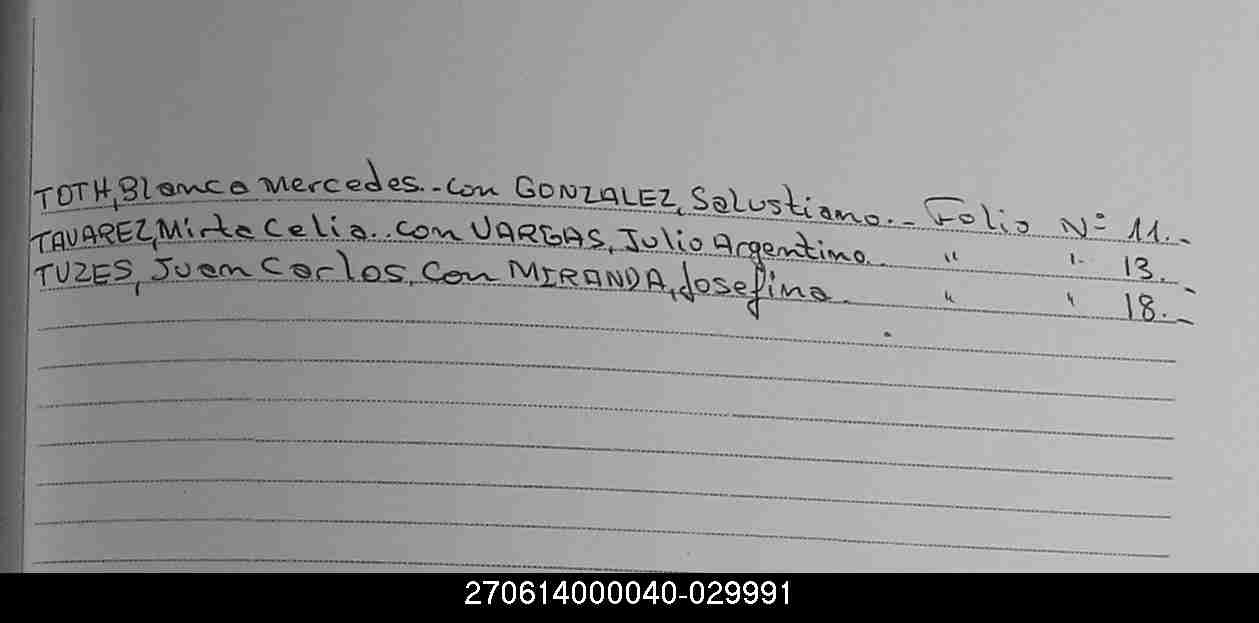 TOTH, Blanca Mercedes.-con GONZALEZ, Salustiano.- Folio Nº 11.-
TAVAREZ, Mirta Celia..con VARGAS, Julio Argentino. " " 13.-
TUZES, Juan Carlos, con MIRANDA, Josefina. " " 18.-
270614000040-029991